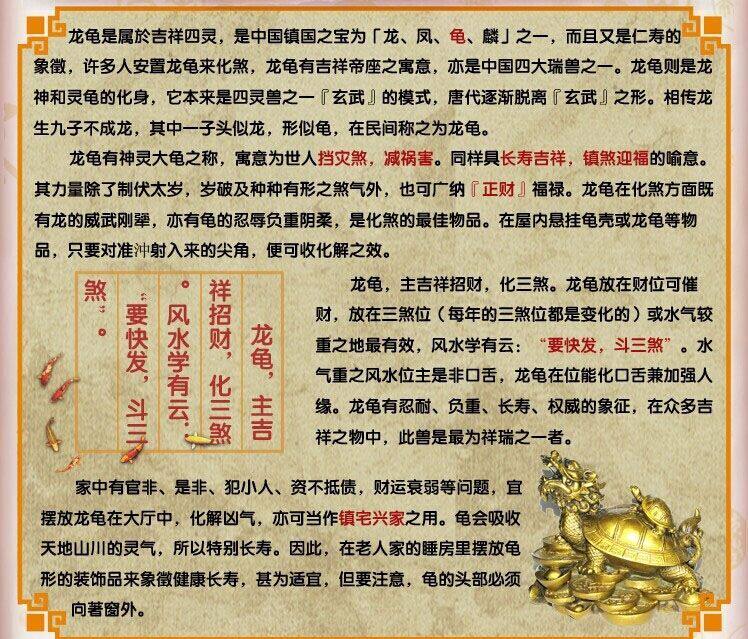 龙龟是属於吉祥四灵，是中国镇国之宝为「龙、凤、龟、麟」之一，而且又是仁寿的
象徵，许多人安置龙龟来化煞，龙龟有吉祥帝座之寓意，亦是中国四大瑞兽之一。龙龟则是龙
神和灵龟的化身，它本来是四灵兽之一『玄武』的模式，唐代逐渐脱离『玄武』之形。相传龙
生九子不成龙，其中一子头似龙，形似龟，在民间称之为龙龟。
龙龟有神灵大龟之称，寓意为世人挡灾煞，减祸害。同样具长寿吉祥，镇煞迎福的喻意。
其力量除了制伏太岁，岁破及种种有形之煞气外，也可广纳『正财』福禄。龙龟在化煞方面既
有龙的威武刚犟，亦有龟的忍辱负重阴柔，是化煞的最佳物品。在屋内悬挂龟壳或龙龟等物
品，只要对准沖射入来的尖角，便可收化解之效。
龙龟，主吉
祥招财，化三煞
。风水学有云：
“要快发，斗三
煞”。
龙龟，主吉祥招财，化三煞。龙龟放在财位可催
财，放在三煞位（每年的三煞位都是变化的）或水气较
重之地最有效，风水学有云：“要快发，斗三煞”。水
气重之风水位主是非口舌，龙龟在位能化口舌兼加强人
缘。龙龟有忍耐、负重、长寿、权威的象征，在众多吉
祥之物中，此兽是最为祥瑞之一者。
家中有官非、是非、犯小人、资不抵债，财运衰弱等问题，宜
摆放龙龟在大厅中，化解凶气，亦可当作镇宅兴家之用。龟会吸收
天地山川的灵气，所以特别长寿。因此，在老人家的睡房里摆放龟
形的装饰品来象徵健康长寿，甚为适宜，但要注意，龟的头部必须
向著窗外。